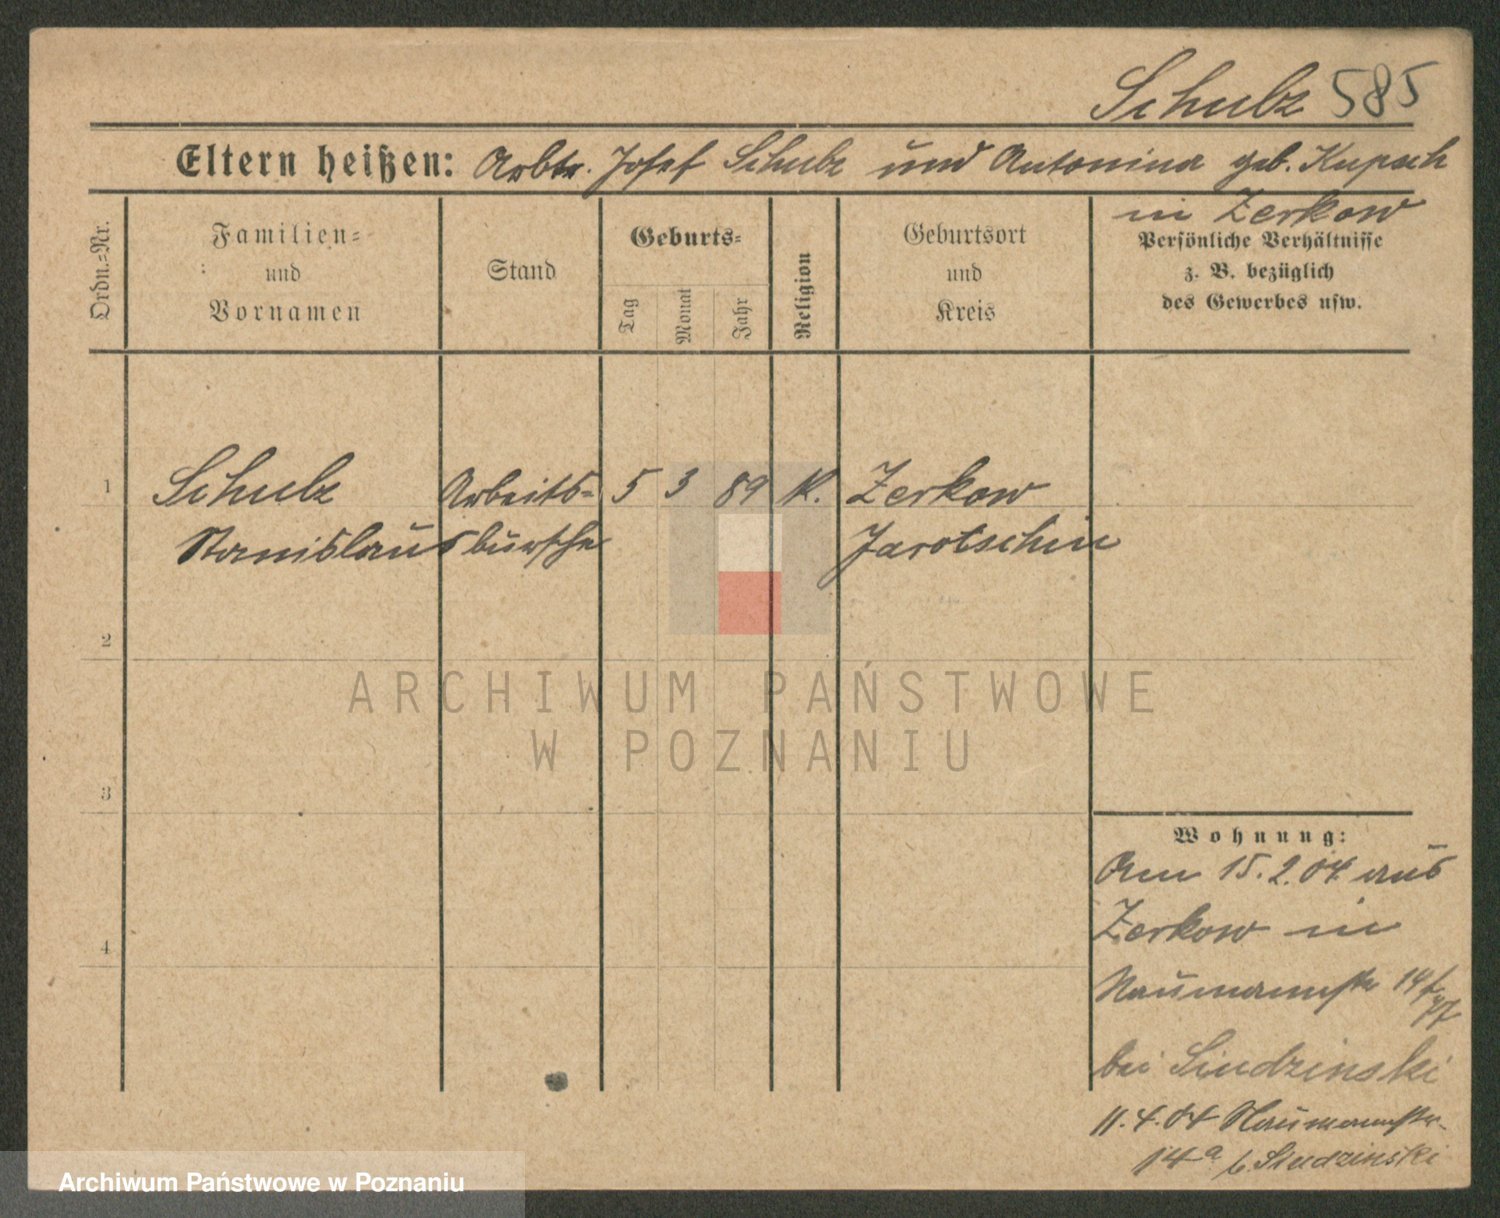 Schulz 585
Eltern heißen: Arbtr. Josef Schulz und Antonina geb. Kupsch
in Zerkow
Ordn.=Nr.
Familien=
und
Vornamen
Stand
Geburts=
Tag
Monat
Jahr
Religion
Geburtsort
und
Kreis
Persönliche Verhältnisse
z. B. bezüglich
des Gewerbes usw.
1 Schulz Arbeits= 5 3 89 K. Zerkow
Stanislaus bursche Jarotschin
2
3
4
Wohnung:
Am 15.2.04 aus
Zerkow in
Naumannstr 14
bei Siudzinski
11.4.04 Naumannstr.
14a b. Siudzinski
ARCHIWUM PAŃSTWOWE
W POZNANIU
Archiwum Państwowe w Poznaniu